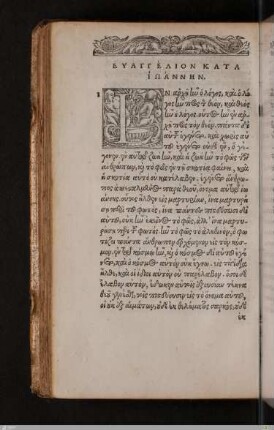 ΕΥΑΓΓΕΛΙΟΝ ΚΑΤΑ
ΙΩΑΝΝΗΝ.
1 ΕΝ ἀρχῇ ἦν ὁ λόγος, καὶ ὁ λό
γος ἦν πρὸς τὸν θεὸν, καὶ θεὸς
ἦν ὁ λόγος. οὗτος ἦν ἐν ἀρ
χῇ πρὸς τὸν θεόν. πάντα δι᾽
αὐτοῦ ἐγένετο, καὶ χωρὶς αὐ
τοῦ ἐγένετο οὐδὲ ἓν, ὃ γέγο
νεν. ἐν αὐτῷ ζωὴ ἦν, καὶ ἡ ζωὴ ἦν τὸ φῶς τῶν
ἀνθρώπων, καὶ τὸ φῶς ἐν τῇ σκοτίᾳ φαίνει, καὶ
ἡ σκοτία αὐτὸ οὐ κατέλαβεν. ἐγένετο ἄνθρω
πος ἀπεσταλμένος παρὰ θεοῦ, ὄνομα αὐτῷ ἰω
άννης. οὗτος ἦλθεν εἰς μαρτυρίαν, ἵνα μαρτυρή
σῃ περὶ τοῦ φωτὸς, ἵνα πάντες πιστεύσωσι δι᾽
αὐτοῦ. οὐκ ἦν ἐκεῖνος τὸ φῶς, ἀλλ᾽ ἵνα μαρτυ
ρήσῃ περὶ τοῦ φωτός. ἦν τὸ φῶς τὸ ἀληθινὸν, ὃ φω
τίζει πάντα ἄνθρωπον ἐρχόμενον εἰς τὸν κόσ
μον. ἐν τῷ κόσμῳ ἦν, καὶ ὁ κόσμος δι᾽ αὐτοῦ ἐγέ
νετο, καὶ ὁ κόσμος αὐτὸν οὐκ ἔγνω. εἰς τὰ ἴδια
ἦλθε, καὶ οἱ ἴδιοι αὐτὸν οὐ παρέλαβον. ὅσοι δὲ
ἔλαβον αὐτὸν, ἔδωκεν αὐτοῖς ἐξουσίαν τέκνα
θεοῦ γενέσθαι, τοῖς πιστεύουσιν εἰς τὸ ὄνομα αὐτοῦ,
οἳ οὐκ ἐξ αἱμάτων, οὐδὲ ἐκ θελήματος σαρκὸς, οὐδὲ
ἐκ